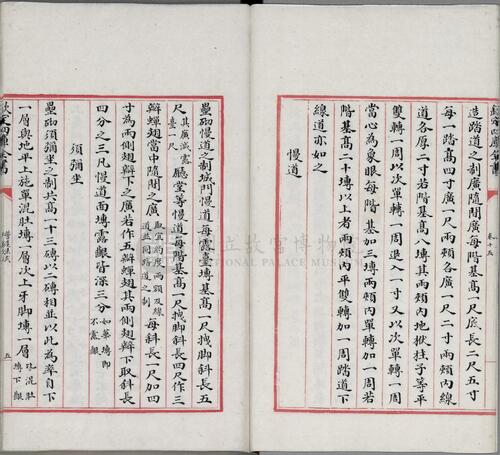 欽定四庫全書
卷十五
造踏道之制廣隨間廣每階基高一尺底長二尺五寸
每一踏高四寸廣一尺兩頰各廣一尺二寸兩頰内線
道各厚二寸若階基高八塼其兩頰内地栿柱子等平
雙轉一周以次單轉一周退入一寸又以次單轉一周
當心為象眼每階基加三塼兩頰内單轉加一周若
階基高二十塼以上者兩頰内平雙轉加一周踏道下
線道亦如之
慢道
壘砌慢道之制城門慢道每露臺塼基高一尺拽脚斜長五
尺其廣減露臺一尺廳堂等慢道每階基高一尺拽脚斜長四尺作三
瓣蟬翅當中隨間之廣取宜約度兩頰及線道並同踏道之制每斜長一尺加四
寸為兩側翅瓣下之廣若作五瓣蟬翅其兩側翅瓣下取斜長
四分之三凡慢道面塼露齦皆深三分如華塼即不露齦
須彌坐
壘砌須彌坐之制共高一十三塼以二塼相並以此為率自下
一層與地平上施單混肚塼一層次上牙脚塼一層比混肚塼下齦
欽定四庫全書
營造法式
五
國立故宮博物院
NATIONAL PALACE MUSEUM